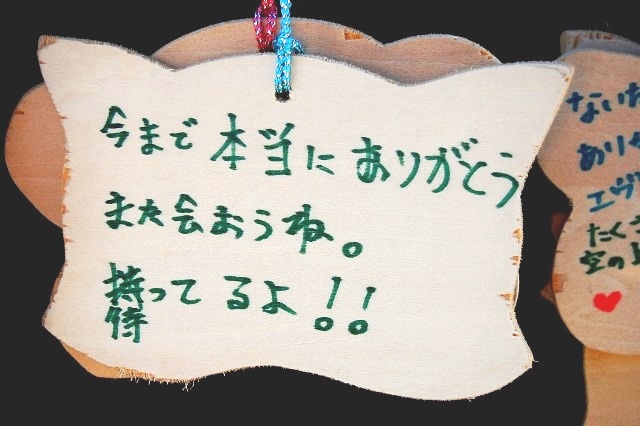 今まで本当にありがとう
また会おうね。
持ってるよ!!
待
ないね
ありが
エヴ
たくさ
空の上